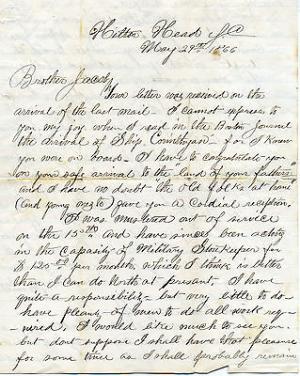 Hilton Head S.C.
May 29th 1866
Brother
Your letter was received on the
arrival of the last mail - I cannot express to
you my joy when I read in the Boston Journal
the arrival of Ship - for I knew
you were on board - I have to congratulate you
on your safe arrival to the land of your fathers
and I have no doubt the old folks at home
(and young ones to) gave you a cordial reception.
I was mustered out of service
on the 15th and have since been acting
in the capacity of Military Storekeeper for
$ 125 per month, which I think is better
than I can do North at present. I have
quite a responsibility - but very little to do -
have plenty of men to do all work req-
uired. I would like much to see you -
but dont suppose I shall have that pleasure
for some time as I shall probably remain